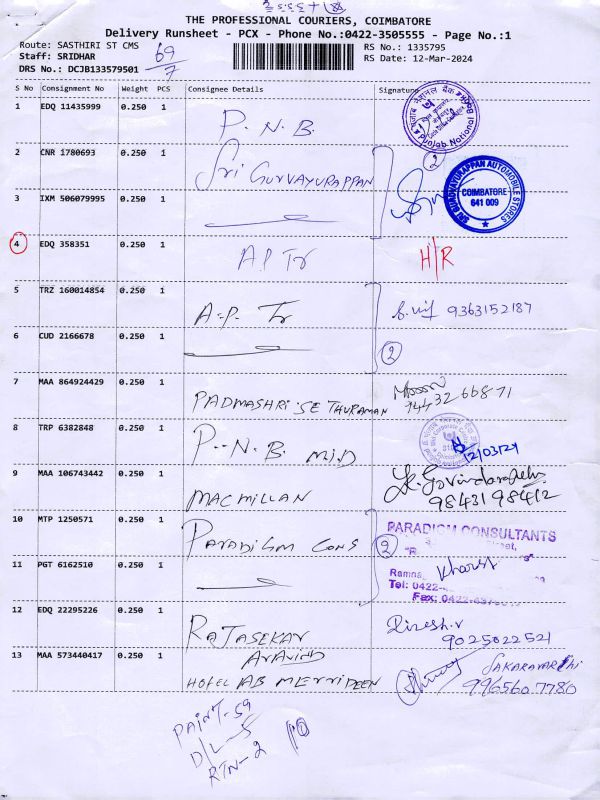 THE PROFESSIONAL COURIERS, COIMBATORE
Delivery Runsheet - PCX - Phone No.:0422-3505555 - Page No.:1
Route: SASTHIRI ST CMS
Staff: SRIDHAR
DRS No.: DCJB133579501
69/7
RS No.: 1335795
RS Date: 12-Mar-2024
S No Consignment No Weight PCS Consignee Details Signature
1 EDQ 11435999 0.250 1 P.N.B.
Punjab National
2 CNR 1780693 0.250 1 Sri GURVAYURAPPAN
2
SRI GURVAYURAPPAN AUTOMOBILE STORES
COIMBATORE
641 009
3 IXM 506079995 0.250 1
4 EDQ 358351 0.250 1 A.P Tr H/R
5 TRZ 160014854 0.250 1 A.P. Tr 9363152187
6 CUD 2166678 0.250 1 2
7 MAA 864924429 0.250 1 PADMASHRI SETHURAMAN
8 TRP 6382848 0.250 1 P.N.B. MID 12/03/24
9 MAA 106743442 0.250 1 MACMILLAN
9843198412
10 MTP 1250571 0.250 1 Paradigm Cons 2
PARADIGM CONSULTANTS
11 PGT 6162510 0.250 1
Tel: 0422-
Fax: 0422-
12 EDQ 22295226 0.250 1 RAJASEKAR Dinesh.v
9025022521
ARAVIND
13 MAA 573440417 0.250 1 HOTEL AB
9965607780
PAINT-59
D/L-5
RTN-2